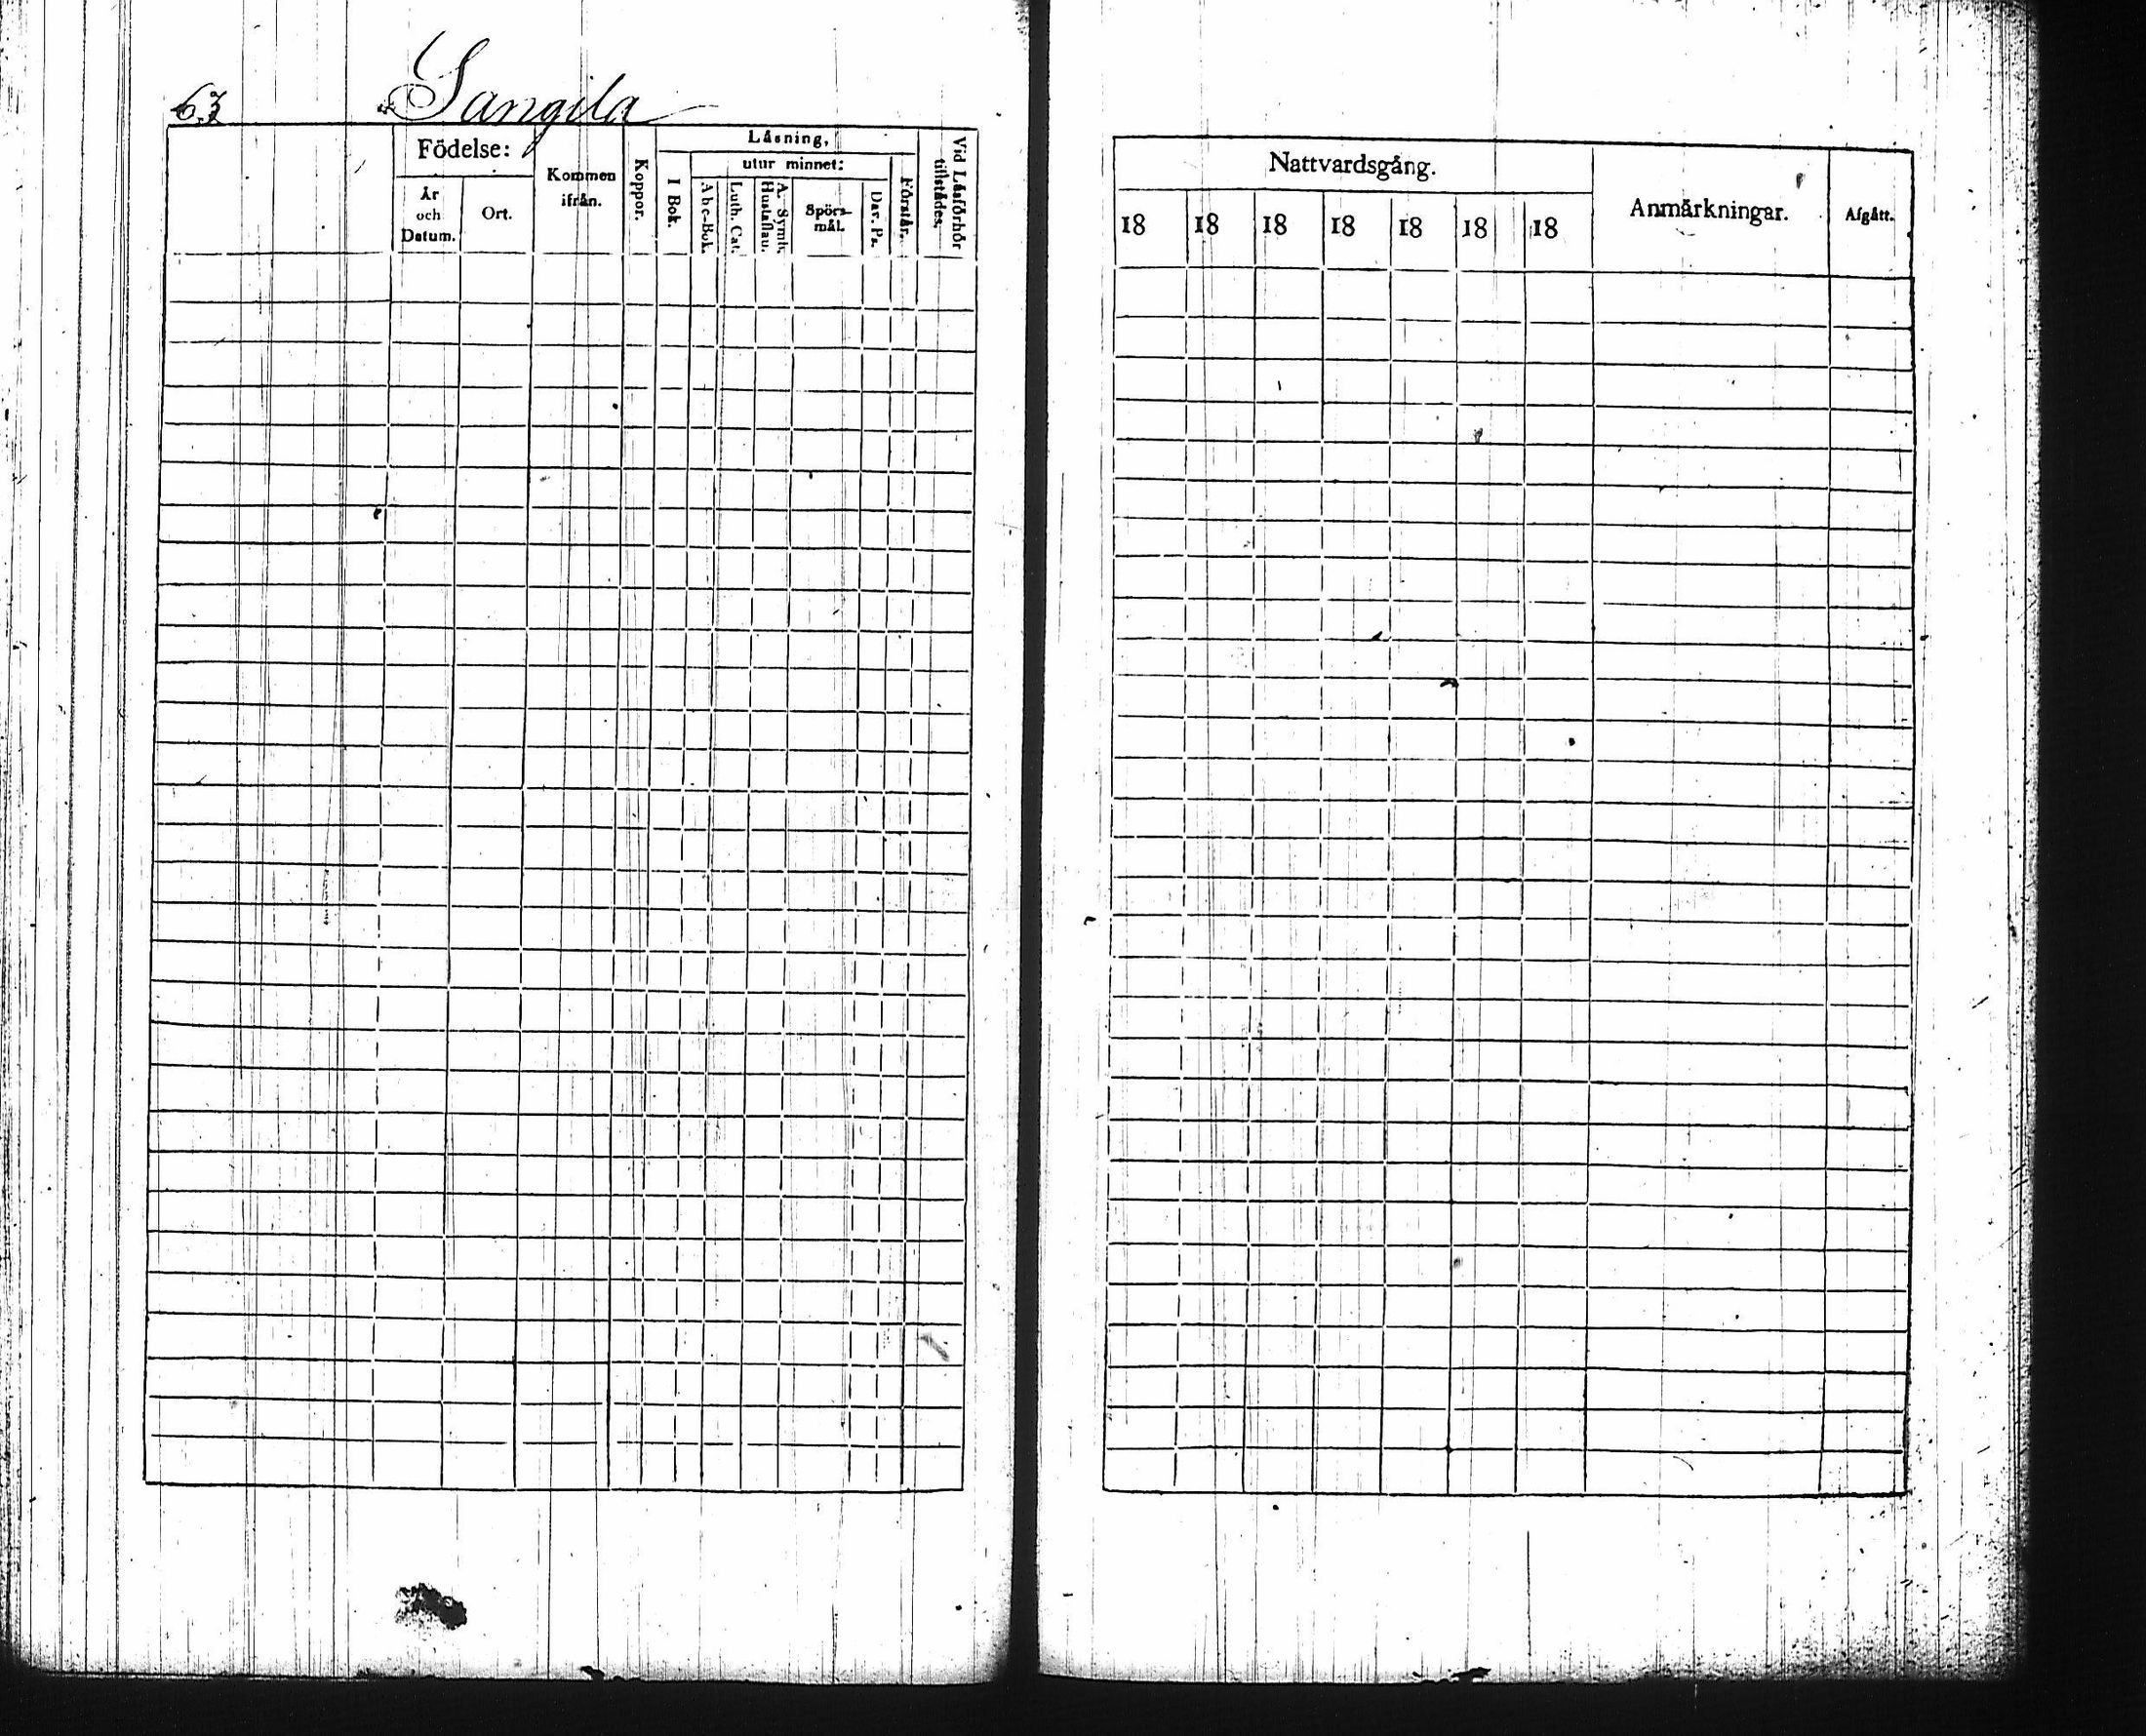 63
Sangila
Födelse:
År och Datum.
Ort.
Kommen ifrån.
Koppor.
Läsning,
I Bok.
utur minnet:
Abc-Bok.
Luth. Cat.
A. Symb. Hustaflau.
Spörsmål.
Dav. Ps.
Förstår.
Vid Läsförhör tillstädes.
Nattvardsgång.
18 18 18 18 18 18 18
Anmärkningar.
Afgått.